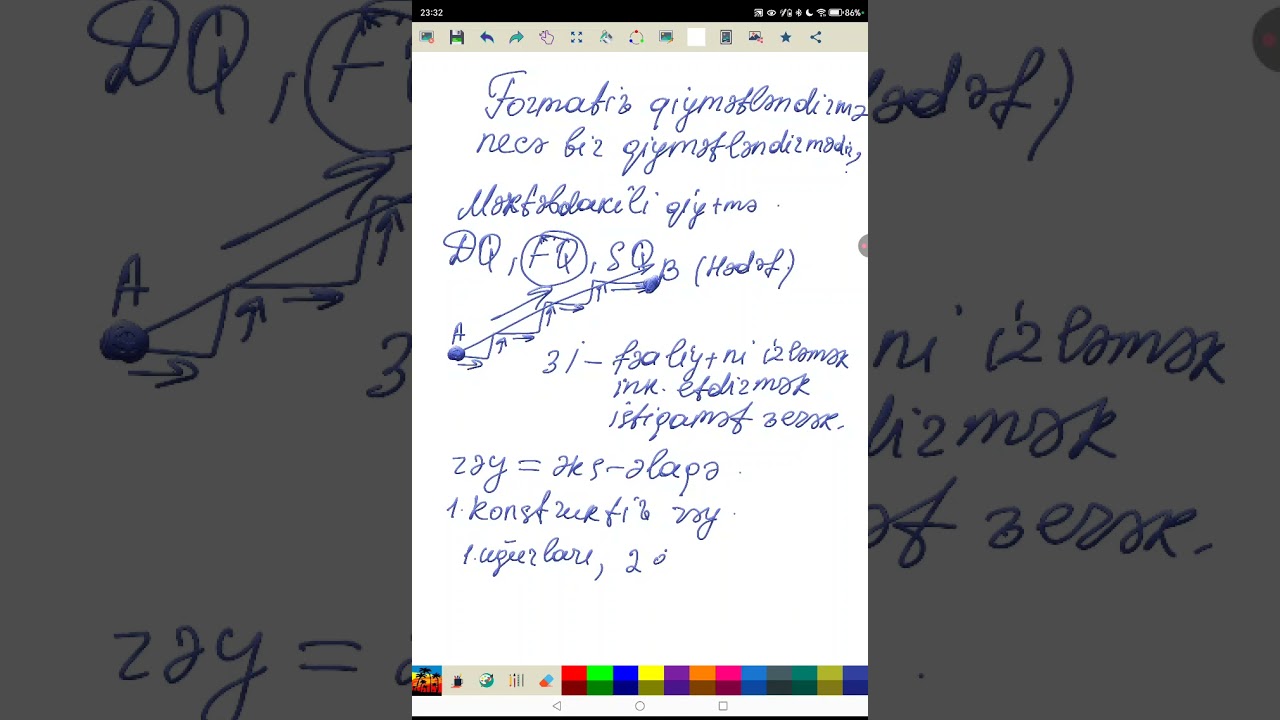 23:32
86%
Formativ qiymətləndirmə
necə bir qiymətləndirmədir?
Məktəbdaxili qiy+mə.
DQ, FQ, SQ
B (Hədəf)
A
3 i - fəaliy+ni izləmək
ink. etdirmək
istiqamət verək.
rəy = əks-əlaqə.
1. Konstruktiv rəy.
1. uğurları, 2